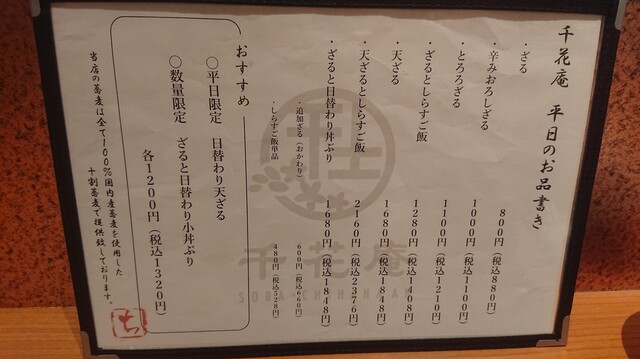 千花庵 平日のお品書き
・ざる 800円（税込880円）
・辛みおろしざる 1000円（税込1100円）
・とろろざる 1100円（税込1210円）
・ざるとしらすご飯 1280円（税込1408円）
・天ざる 1680円（税込1848円）
・天ざるとしらすご飯 2160円（税込2376円）
・ざると日替わり丼ぶり 1680円（税込1848円）
・追加ざる（おかわり） 600円（税込660円）
・しらすご飯単品 480円（税込528円）
おすすめ
○平日限定 日替わり天ざる
○数量限定 ざると日替わり小丼ぶり
各1200円（税込1320円）
当店の蕎麦は全て100%国内産蕎麦を使用した
十割蕎麦で提供致しております。
ち
千花庵